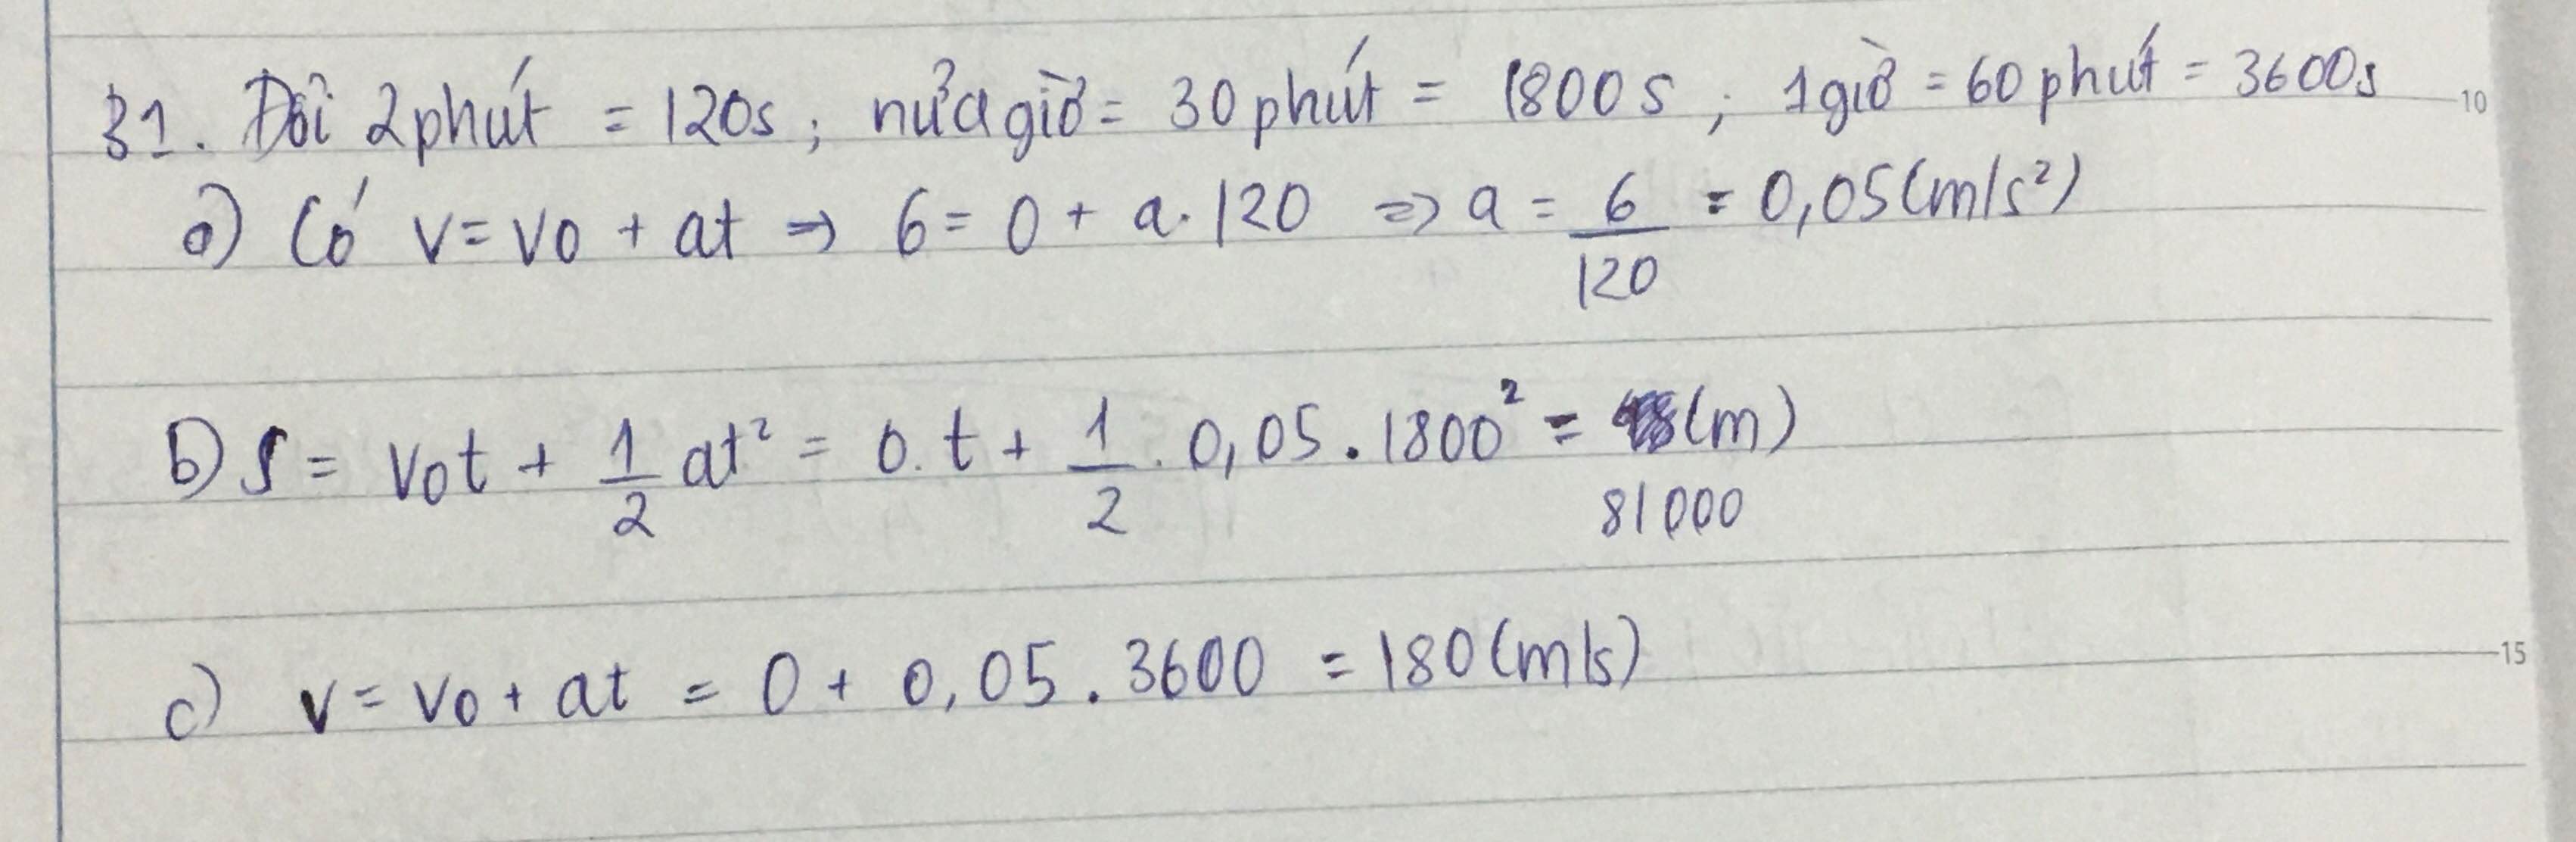 31. Đổi 2 phút = 120s ; nửa giờ = 30 phút = 1800s ; 1 giờ = 60 phút = 3600s
10
a) Có v = v0 + at ⇒ 6 = 0 + a. 120 ⇒ a = 6/120 = 0,05 (m/s²)
b) S = v0t + 1/2 at² = 0. t + 1/2 . 0,05 . 1800² = (m)
81000
c) v = v0 + at = 0 + 0,05 . 3600 = 180 (m/s)
15